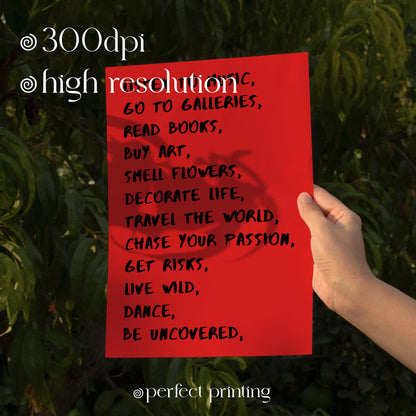 300dpi
high resolution
MUSIC,
GO TO GALLERIES,
READ BOOKS,
BUY ART,
SMELL FLOWERS,
DECORATE LIFE,
TRAVEL THE WORLD,
CHASE YOUR PASSION,
GET RISKS,
LIVE WILD,
DANCE,
BE UNCOVERED,
perfect printing